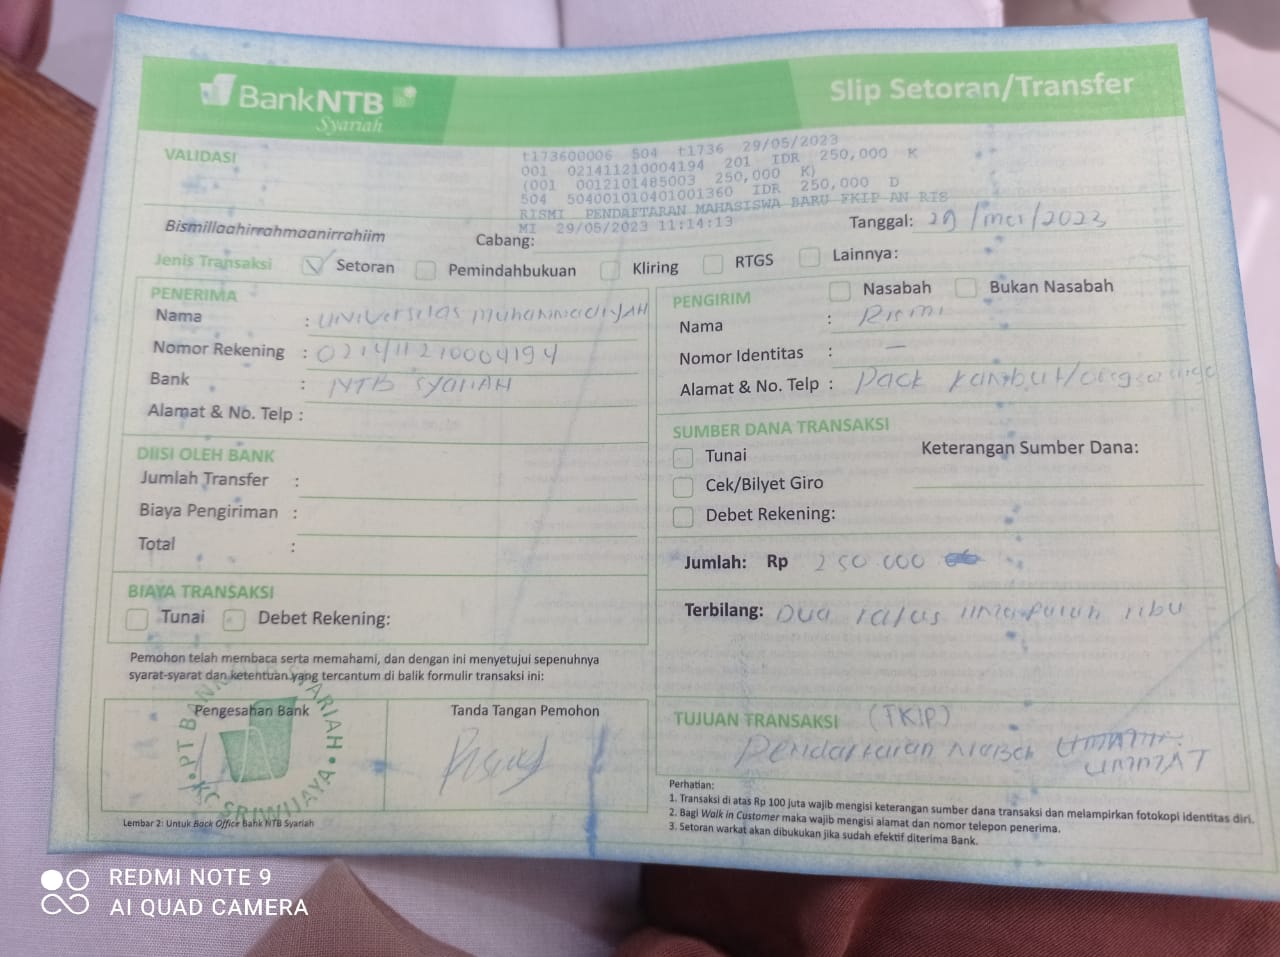 BankNTB
Syariah
Slip Setoran/Transfer
VALIDASI
t173600006 504 t1736 29/05/2023
001 021411210004194 201 IDR 250,000 K
(001 0012101485003 250,000 K)
504 504001010401001360 IDR 250,000 D
RISMI PENDAFTARAN MAHASISWA BARU FKIP AN RIS
MI 29/05/2023 11:14:13
Bismillaahirrahmaanirrahiim
Cabang:
Tanggal: 29/mei/2023
Jenis Transaksi Setoran Pemindahbukuan Kliring RTGS Lainnya:
PENERIMA
Nama : Universitas Muhammadiyah
Nomor Rekening : 021411210004194
Bank : NTB SYARIAH
Alamat & No. Telp :
PENGIRIM Nasabah Bukan Nasabah
Nama : Rismi
Nomor Identitas : —
Alamat & No. Telp : Pack
DIISI OLEH BANK
Jumlah Transfer :
Biaya Pengiriman :
Total :
SUMBER DANA TRANSAKSI
Tunai Keterangan Sumber Dana:
Cek/Bilyet Giro
Debet Rekening:
Jumlah: Rp 250.000
BIAYA TRANSAKSI
Tunai Debet Rekening:
Terbilang: Dua ratus lima puluh ribu
Pemohon telah membaca serta memahami, dan dengan ini menyetujui sepenuhnya
syarat-syarat dan ketentuan yang tercantum di balik formulir transaksi ini:
Pengesahan Bank
Tanda Tangan Pemohon
PT BANK NTB SYARIAH
KC SRIWIJAYA
TUJUAN TRANSAKSI (TKIP)
Pendaftaran UMMAT
Perhatian:
1. Transaksi di atas Rp 100 juta wajib mengisi keterangan sumber dana transaksi dan melampirkan fotokopi identitas diri.
2. Bagi Walk in Customer maka wajib mengisi alamat dan nomor telepon penerima.
3. Setoran warkat akan dibukukan jika sudah efektif diterima Bank.
Lembar 2: Untuk Back Office Bank NTB Syariah
REDMI NOTE 9
AI QUAD CAMERA